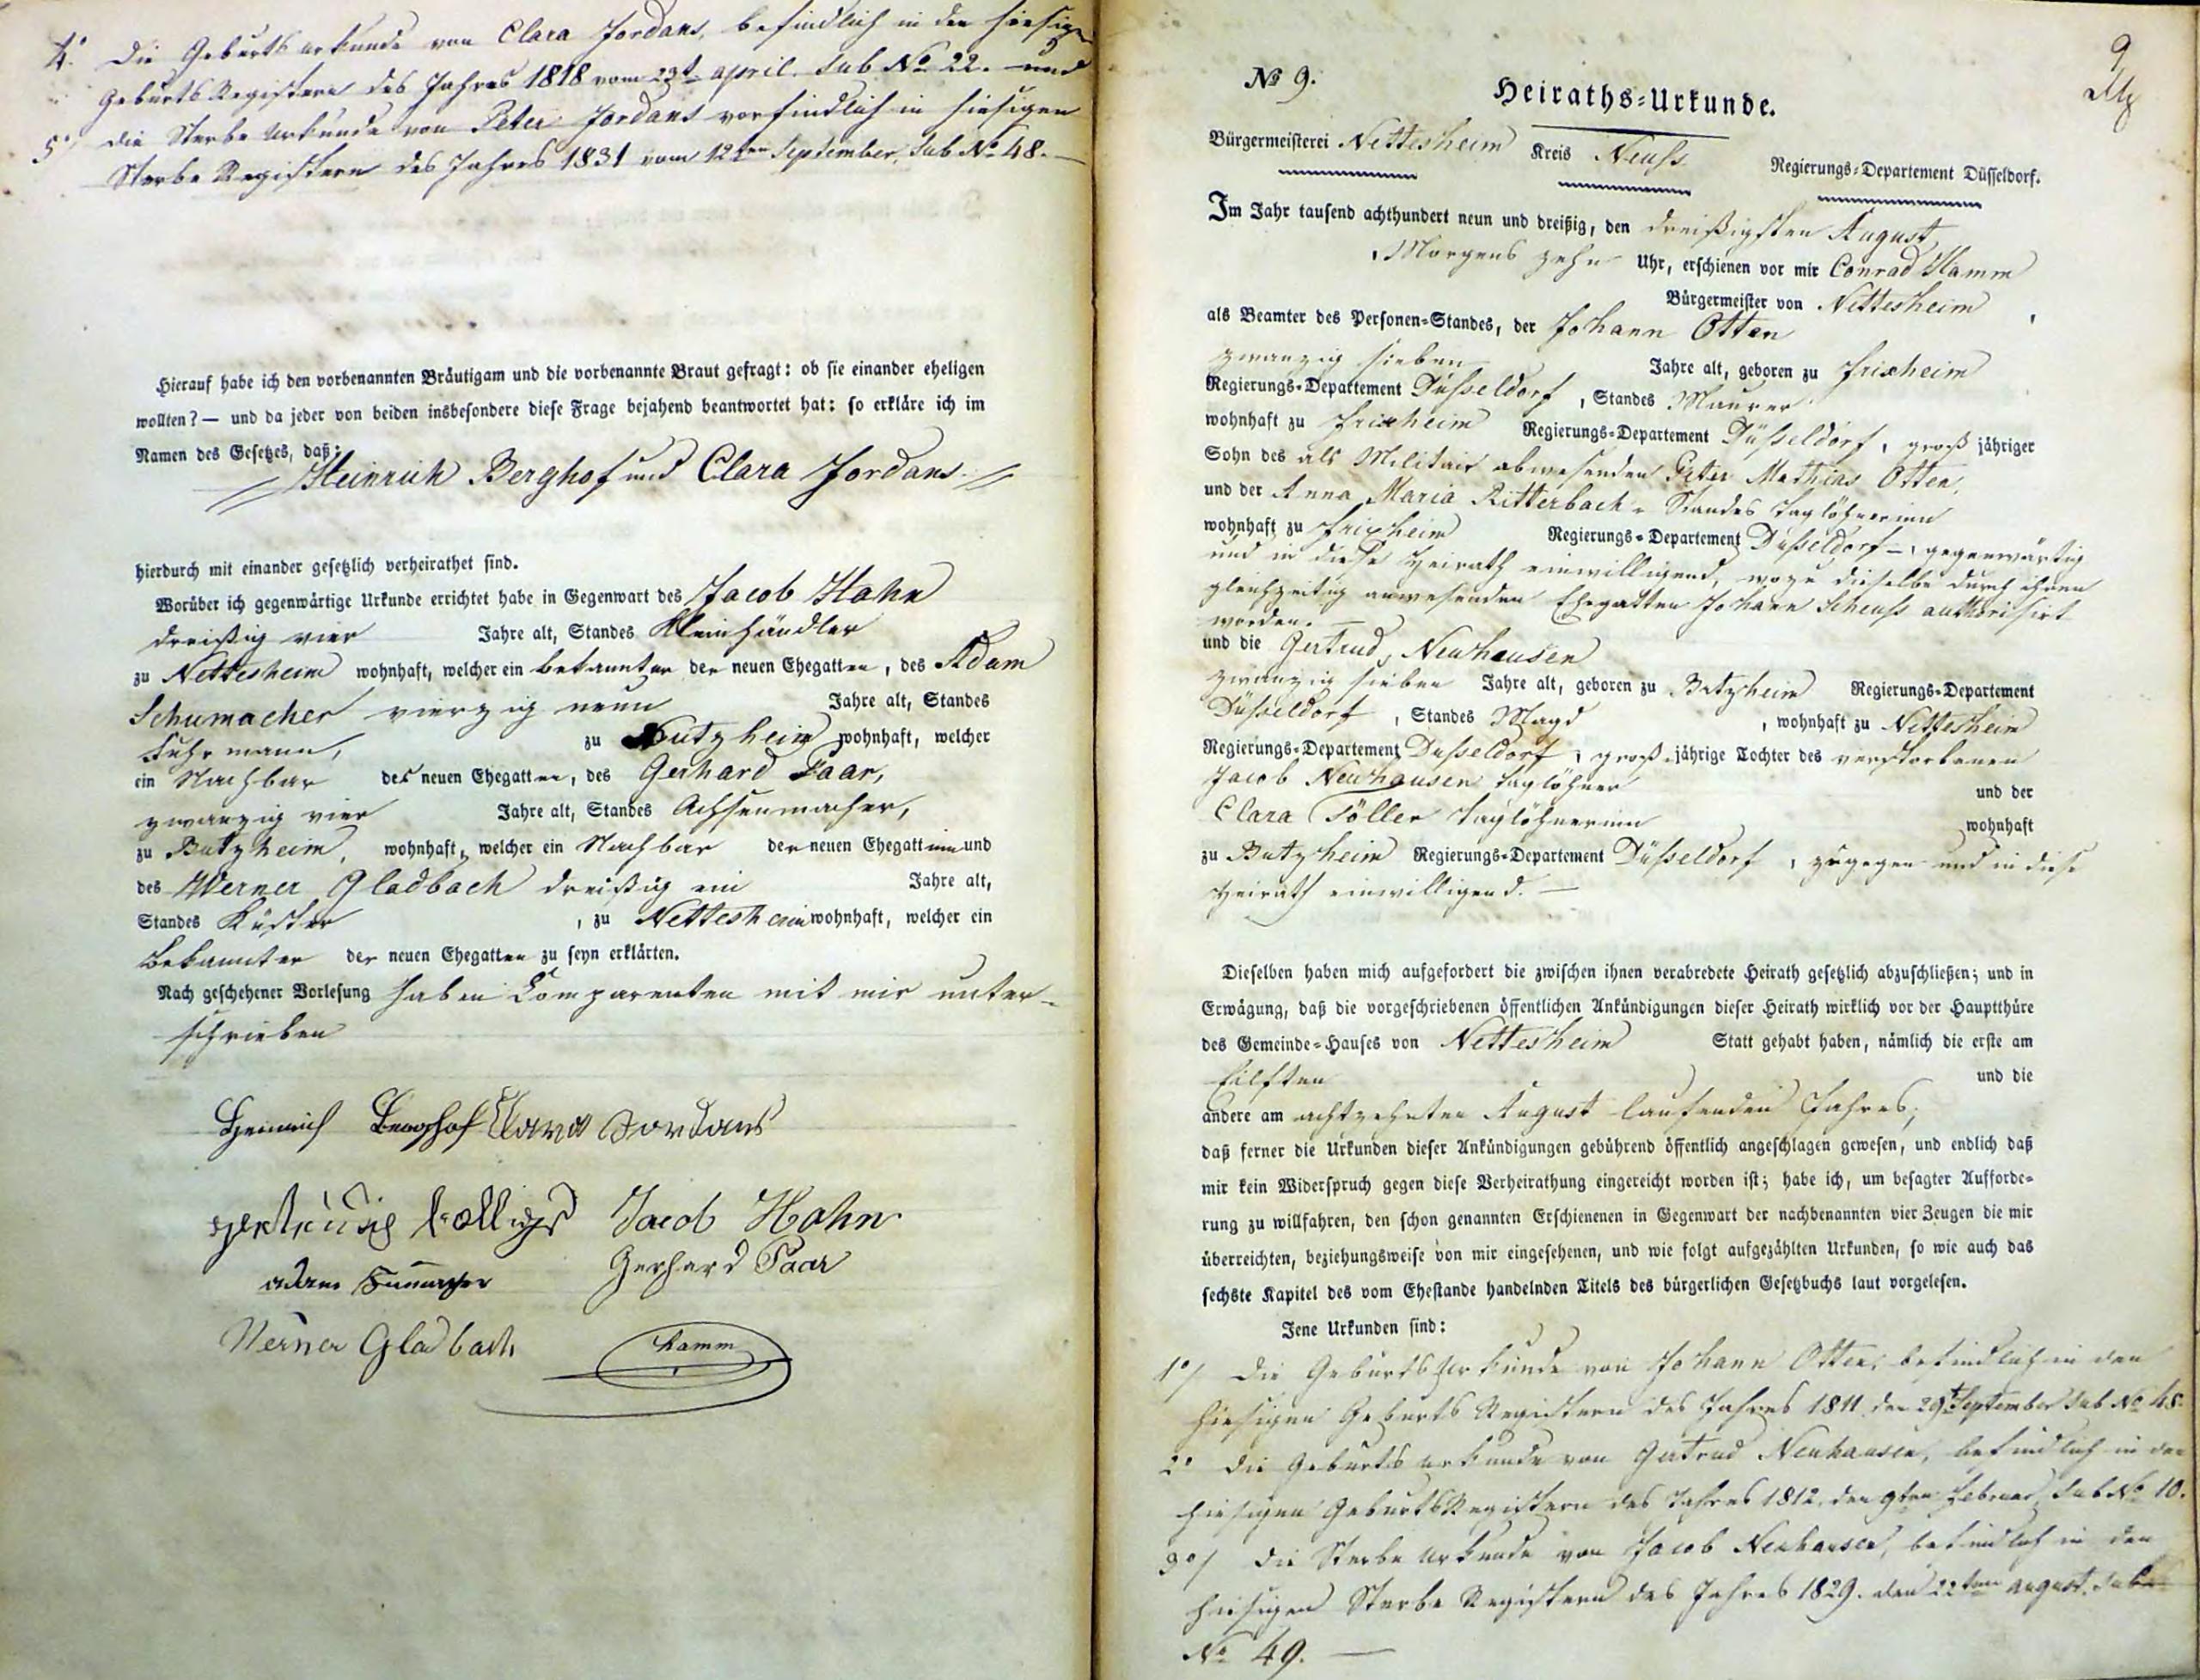 4° Die Geburts urkunde von Clara Jordans, befindlich in den hiesigen
Geburts Registern des Jahres 1818 vom 23t. april. sub No 22. und
5°/ die Sterbe Urkunde von Peter Jordans vorfindlich in hiesigen
Sterbe Registern des Jahres 1831 vom 12ten September, sub No 48. —
Hierauf habe ich den vorbenannten Bräutigam und die vorbenannte Braut gefragt: ob sie einander eheligen
wollten? — und da jeder von beiden insbesondere diese Frage bejahend beantwortet hat: so erkläre ich im
Namen des Gesetzes, daß:
Heinrich Berghof und Clara Jordans.
hierdurch mit einander gesetzlich verheirathet sind.
Worüber ich gegenwärtige Urkunde errichtet habe in Gegenwart des Jacob Hahn
dreißig vier Jahre alt, Standes Kleinhändler
zu Nettesheim wohnhaft, welcher ein bekannter der neuen Ehegatten, des Adam
Schumacher vierzig neun Jahre alt, Standes
Fuhrmann, zu Butzheim wohnhaft, welcher
ein Nachbar der neuen Ehegatten, des Gerhard Paar,
zwanzig vier Jahre alt, Standes Achsenmacher,
zu Butzheim, wohnhaft, welcher ein Nachbar der neuen Ehegattinn und
des Werner Gladbach dreißig ein Jahre alt,
Standes Küster, zu Nettesheim wohnhaft, welcher ein
bekannter der neuen Ehegatten zu seyn erklärten.
Nach geschehener Vorlesung haben Comparenten mit mir unter-
schrieben
Heinrich Berghof Clara Jordans
Jacob Hahn
adam Schumacher Gerhard Paar
Werner Gladbach Hamm
9
No 9.
Heiraths-Urkunde.
Bürgermeisterei Nettesheim Kreis Neuss Regierungs-Departement Düsseldorf.
Im Jahr tausend achthundert neun und dreißig, den dreißigsten August
Morgens zehn Uhr, erschienen vor mir Conrad Hamm
Bürgermeister von Nettesheim,
als Beamter des Personen-Standes, der Johann Otten
zwanzig sieben Jahre alt, geboren zu Frixheim
Regierungs-Departement Düsseldorf, Standes Maurer
wohnhaft zu Frixheim Regierungs-Departement Düsseldorf, groß jähriger
Sohn des als Militair abwesenden Peter Mathias Otten,
und der Anna Maria Ritterbach, Standes Taglöhnerinn
wohnhaft zu Frixheim Regierungs-Departement Düsseldorf —, gegenwärtig
und in diese Heirath einwilligend, wozu dieselbe durch ihren
gleichzeitig anwesenden Ehegatten Johann Scheuss authorisirt
worden. —
und die Gertrud Neuhausen
zwanzig sieben Jahre alt, geboren zu Butzheim Regierungs-Departement
Düsseldorf, Standes Magd, wohnhaft zu Nettesheim
Regierungs-Departement Düsseldorf, groß jährige Tochter des verstorbenen
Jacob Neuhausen Taglöhner und der
Clara Töller Taglöhnerinn wohnhaft
zu Butzheim Regierungs-Departement Düsseldorf, zugegen und in diese
Heirath einwilligend. —
Dieselben haben mich aufgefordert die zwischen ihnen verabredete Heirath gesetzlich abzuschließen; und in
Erwägung, daß die vorgeschriebenen öffentlichen Ankündigungen dieser Heirath wirklich vor der Hauptthüre
des Gemeinde-Hauses von Nettesheim Statt gehabt haben, nämlich die erste am
Eilften und die
andere am achtzehnten August laufenden Jahres,
daß ferner die Urkunden dieser Ankündigungen gebührend öffentlich angeschlagen gewesen, und endlich daß
mir kein Widerspruch gegen diese Verheirathung eingereicht worden ist; habe ich, um besagter Aufforde-
rung zu willfahren, den schon genannten Erschienenen in Gegenwart der nachbenannten vier Zeugen die mir
überreichten, beziehungsweise von mir eingesehenen, und wie folgt aufgezählten Urkunden, so wie auch das
sechste Kapitel des vom Ehestande handelnden Titels des bürgerlichen Gesetzbuchs laut vorgelesen.
Jene Urkunden sind:
1°/ Die Geburts Urkunde von Johann Otten, befindlich in den
hiesigen Geburts Registern des Jahres 1811. den 29t September sub No 48.
2° die Geburts urkunde von Gertrud Neuhausen, befindlich in den
hiesigen Geburts Registern des Jahres 1812, den 9ten Februar, sub No 10.
3°/ die Sterbe Urkunde von Jacob Neuhausen, befindlich in den
hiesigen Sterbe Registern des Jahres 1829. den 22ten august. sub
No 49. —